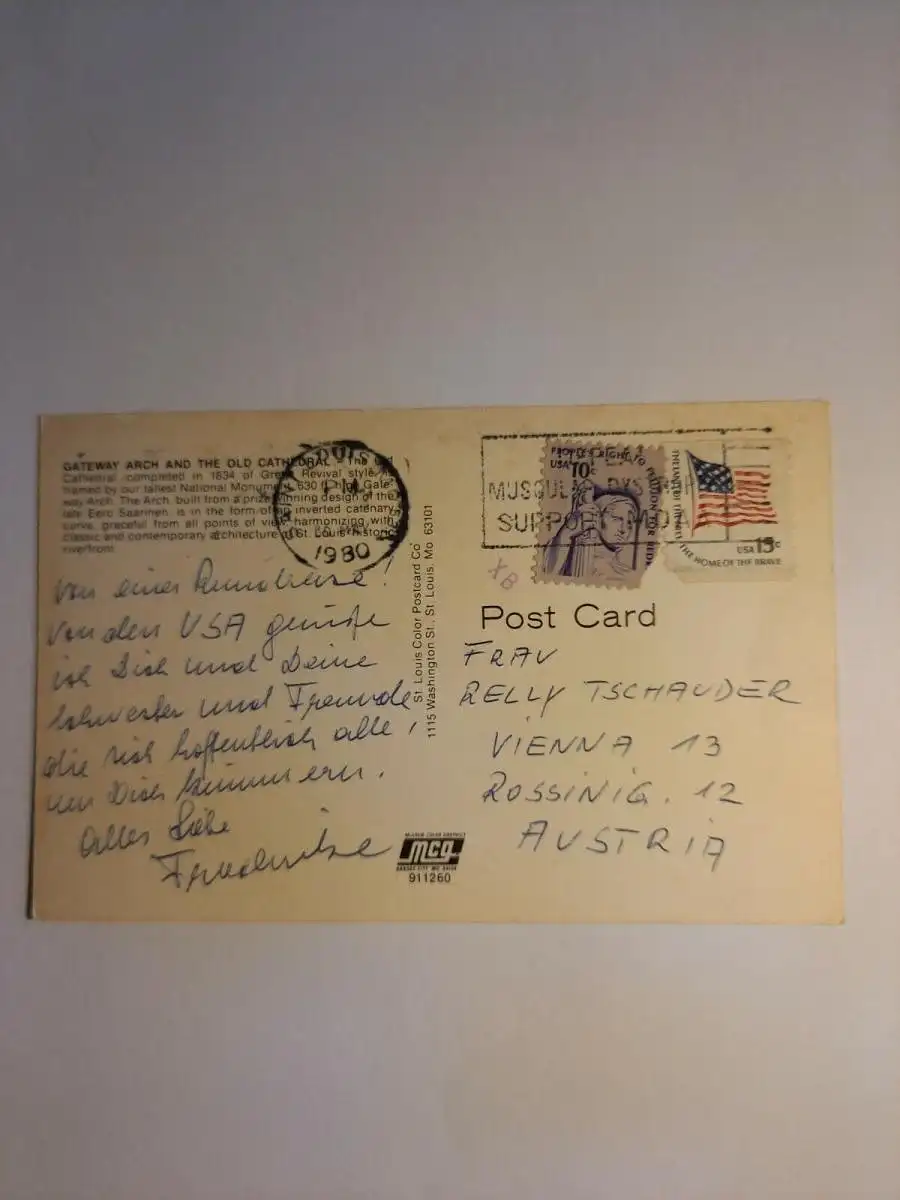 GATEWAY ARCH AND THE OLD CATHEDRAL - The Old
Cathedral, completed in 1834 of Greek Revival style, is
framed by our tallest National Monument, 630 foot Gate-
way Arch. The Arch, built from a prize winning design of the
late Eero Saarinen, is in the form of an inverted catenary
curve, graceful from all points of view, harmonizing with
classic and contemporary architecture of St. Louis' historic
riverfront.
von einer Rundreise!
von den USA grüße
ich Dich und Deine
Schwester und Freunde,
die sich hoffentlich alle
um Dich kümmern.
Alles Liebe
St. Louis Color Postcard Co
1115 Washington St., St. Louis, Mo 63101
LOUIS
PM
1980
MUSCULAR DYSTROPHY
SUPPORT MDA
PEOPLE'S RIGHT TO PETITION FOR REDRESS
USA 10c
THE LAND OF THE FREE
THE HOME OF THE BRAVE
USA 13c
XB
Post Card
FRAU
RELLY TSCHAUDER
VIENNA 13
ROSSINIG. 12
AUSTRIA
McGREW COLOR GRAPHICS
mcg
KANSAS CITY, MO. 64108
911260